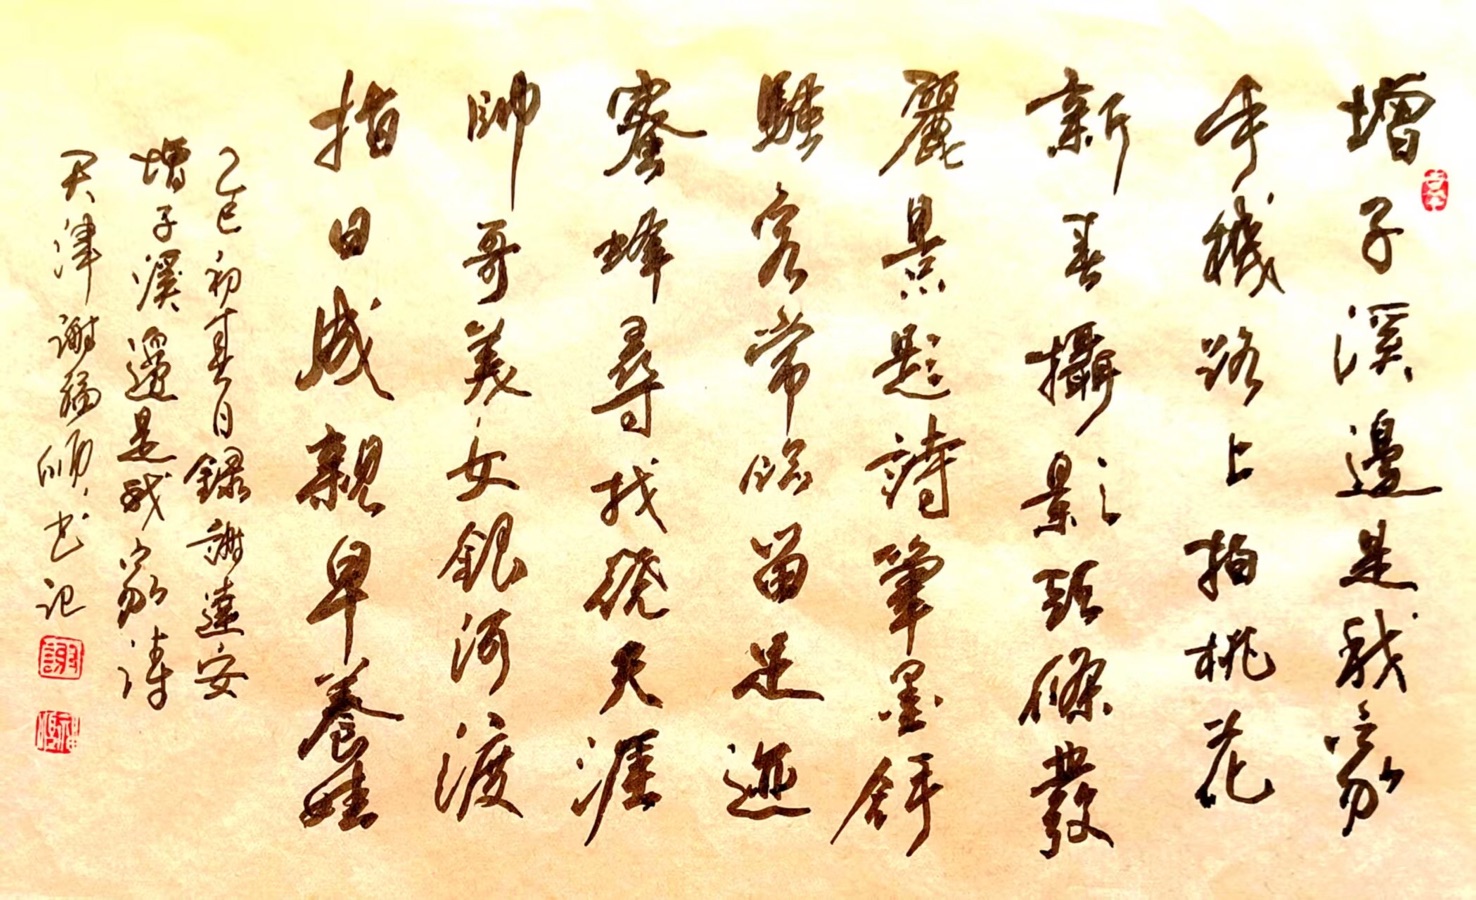 增子溪邊是我家
手機路上拍桃花
新春攝影頭條發
麗景題詩筆墨舒
騷客常臨留足迹
蜜蜂尋找繞天涯
帥哥美女銀河渡
指日成親早養娃
乙巳初春日錄謝遠安
增子溪邊是我家詩
天津謝福順書記
謝
福順